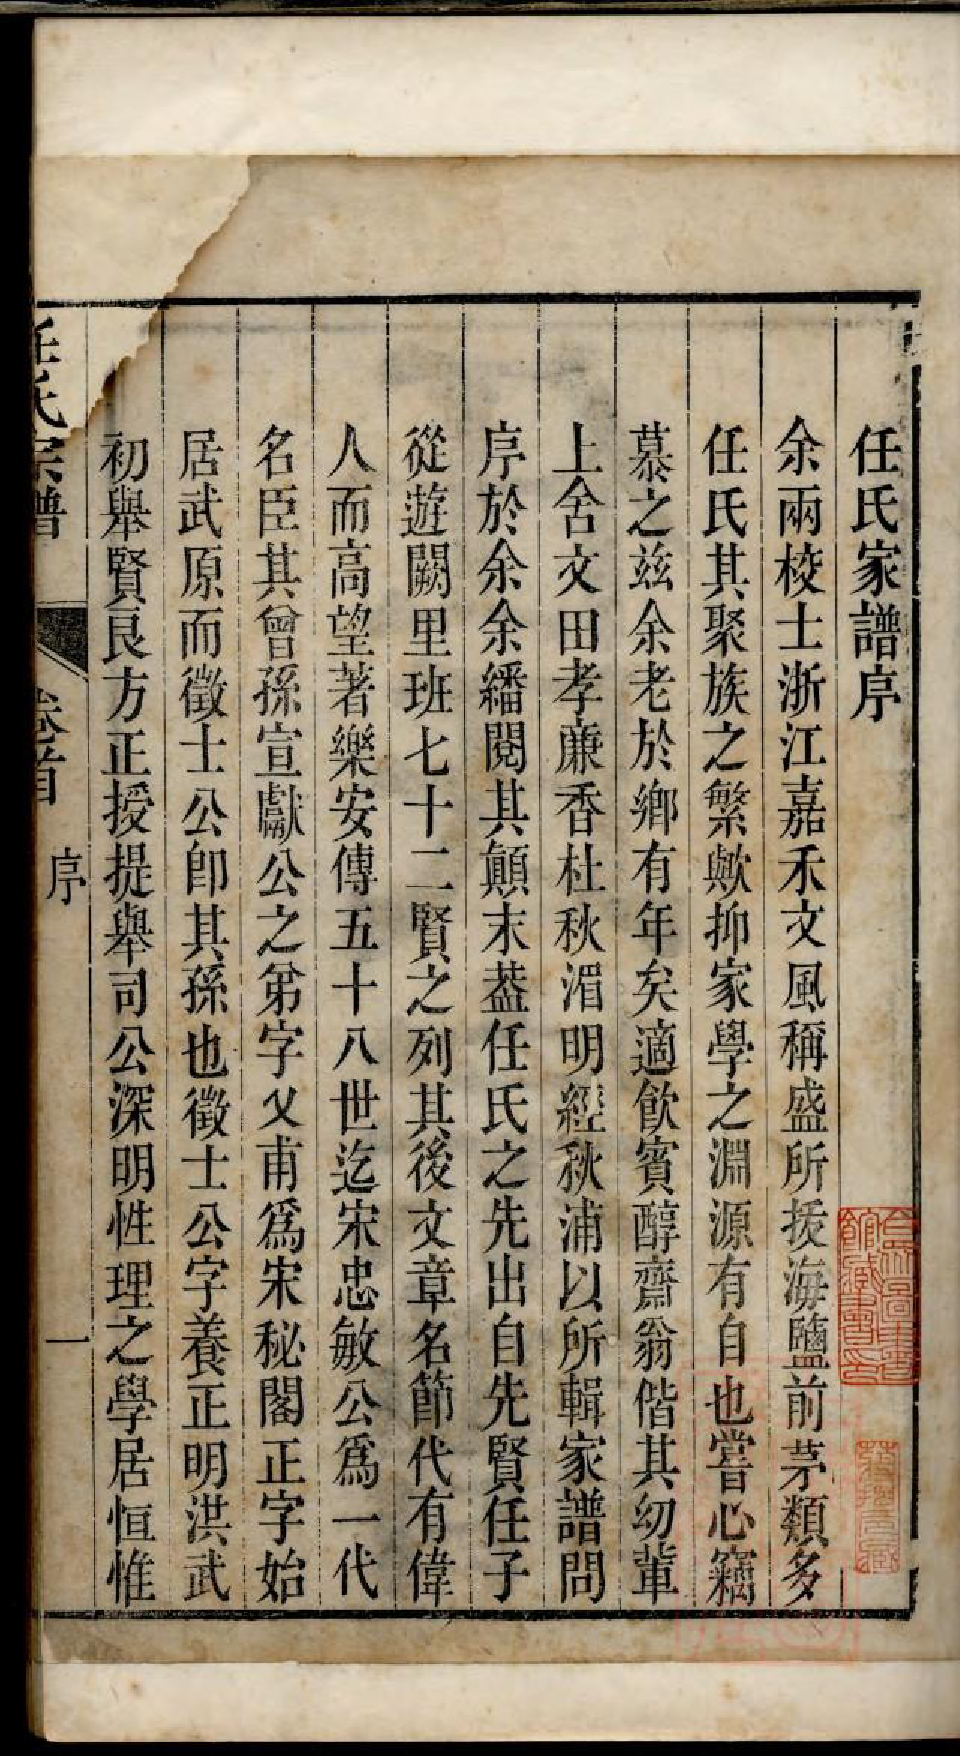 任氏家譜序
余兩校士浙江嘉禾文風稱盛所拔海鹽前茅類多
任氏其聚族之繁歟抑家學之淵源有自也嘗心竊
慕之玆余老於鄉有年矣適飮賓醇齋翁偕其幼輩
上舍文田孝廉香杜秋湄明經秋浦以所輯家譜問
序於余余繙閱其顛末葢任氏之先出自先賢任子
從遊闕里班七十二賢之列其後文章名節代有偉
人而高望著樂安傳五十八世迄宋忠敏公爲一代
名臣其曾孫宣獻公之弟字父甫爲宋秘閣正字始
居武原而徵士公卽其孫也徵士公字養正明洪武
初舉賢良方正授提舉司公深明性理之學居恒惟
任氏宗譜
卷首
序
一